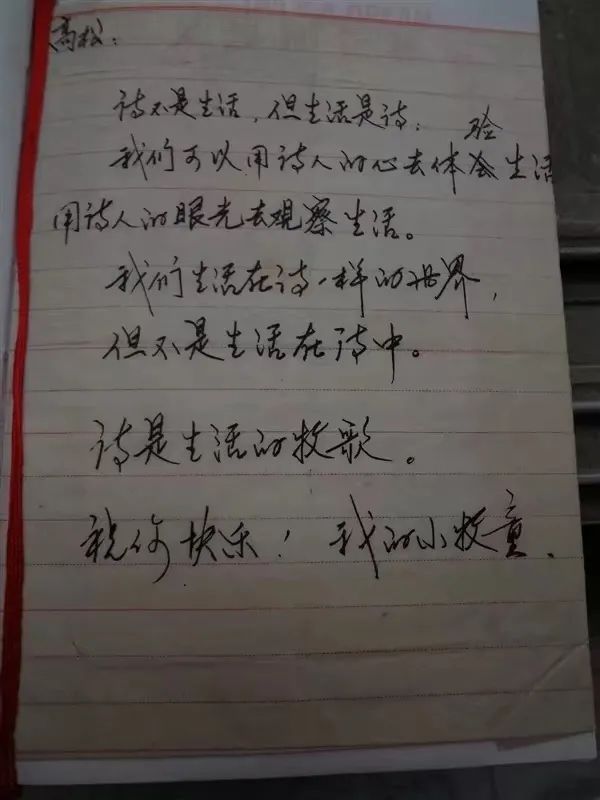 高松：
诗不是生活，但生活是诗；
我们可以用诗人的心去体验生活
用诗人的眼光去观察生活。
我们生活在诗一样的世界，
但不是生活在诗中。
诗是生活的牧歌。
祝你快乐！我的小牧童.